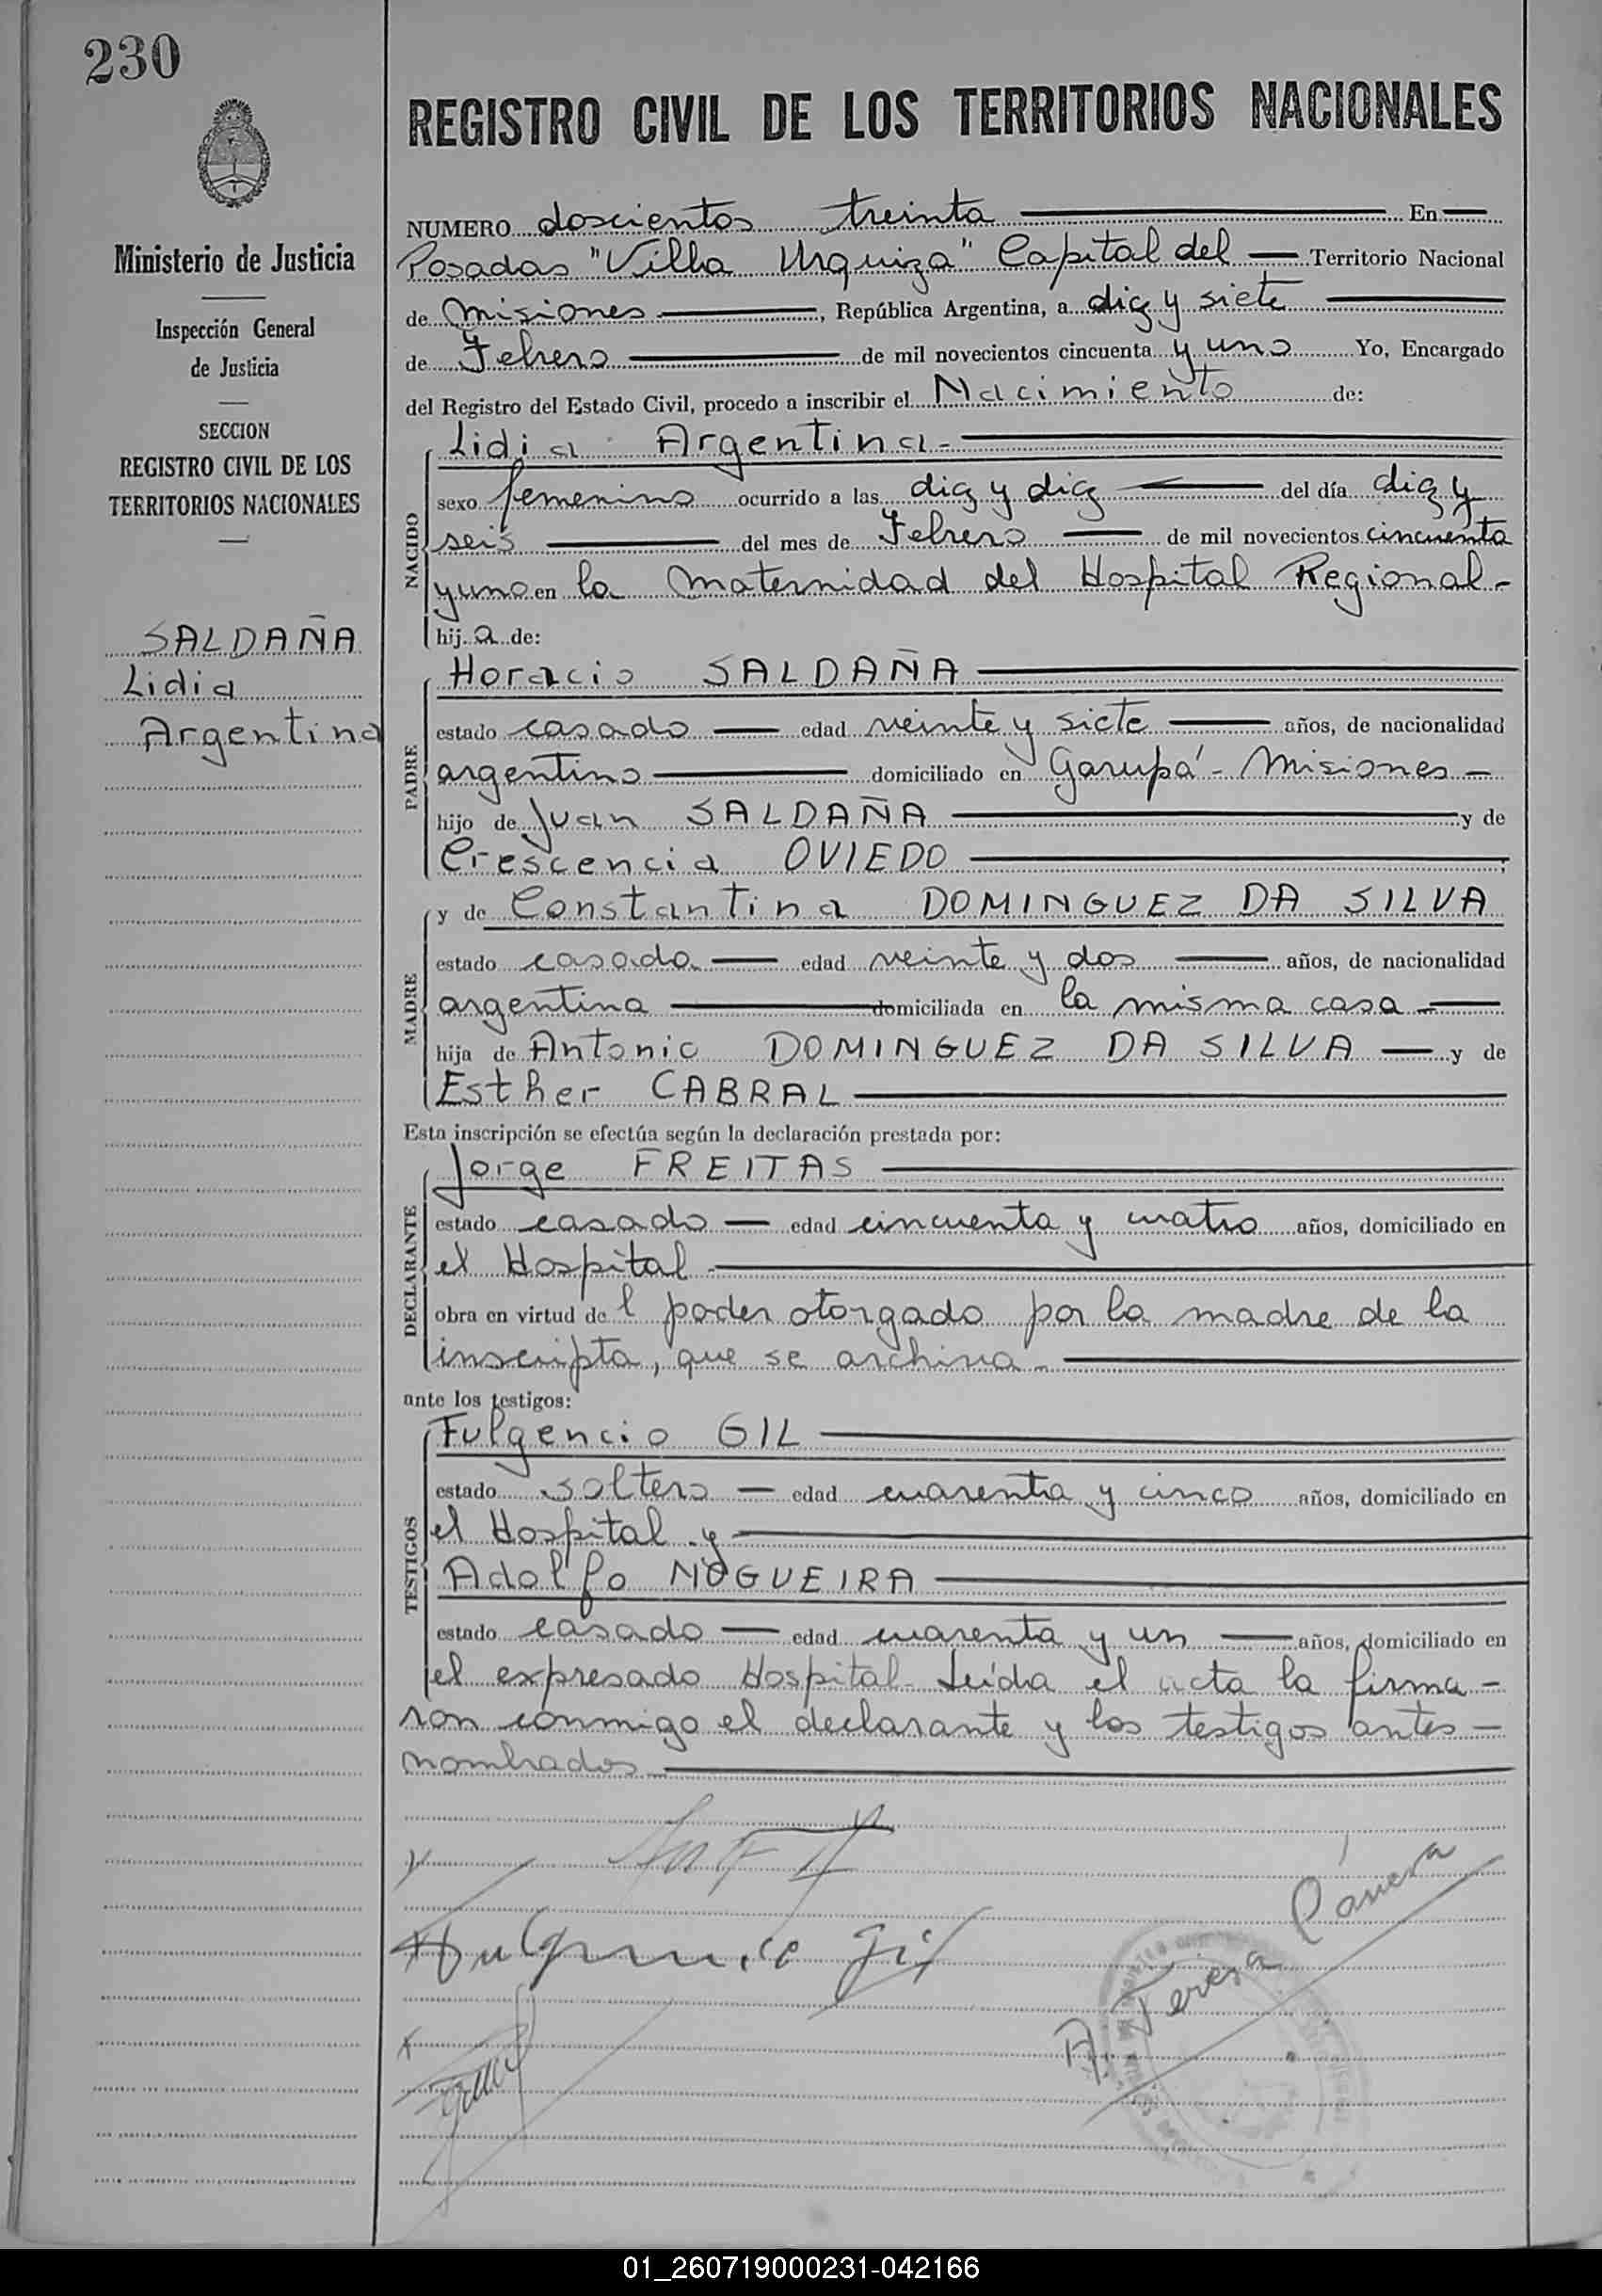 230
REGISTRO CIVIL DE LOS TERRITORIOS NACIONALES
Ministerio de Justicia
Inspección General
de Justicia
SECCION
REGISTRO CIVIL DE LOS
TERRITORIOS NACIONALES
SALDAÑA
Lidia
Argentina
NUMERO doscientos treinta En
Posadas "Villa Urquiza" Capital del Territorio Nacional
de Misiones, República Argentina, a diez y siete
de Febrero de mil novecientos cincuenta y uno Yo, Encargado
del Registro del Estado Civil, procedo a inscribir el Nacimiento de:
NACIDO
Lidia Argentina.-
sexo femenino ocurrido a las diez y diez del día diez y
seis del mes de Febrero de mil novecientos cincuenta
y uno en la Maternidad del Hospital Regional.-
hij a de:
PADRE
Horacio SALDAÑA
estado casado edad veinte y siete años, de nacionalidad
argentino domiciliado en Garupá - Misiones -
hijo de Juan SALDAÑA y de
Crescencia OVIEDO;
MADRE
y de Constantina DOMINGUEZ DA SILVA
estado casada edad veinte y dos años, de nacionalidad
argentina domiciliada en la misma casa
hija de Antonio DOMINGUEZ DA SILVA y de
Esther CABRAL
Esta inscripción se efectúa según la declaración prestada por:
DECLARANTE
Jorge FREITAS
estado casado edad cincuenta y cuatro años, domiciliado en
el Hospital.
obra en virtud de l poder otorgado por la madre de la
inscripta, que se archiva.
ante los testigos:
TESTIGOS
Fulgencio GIL
estado soltero edad cuarenta y cinco años, domiciliado en
el Hospital y
Adolfo NOGUEIRA
estado casado edad cuarenta y un años, domiciliado en
el expresado Hospital. Leída el acta la firma-
ron conmigo el declarante y los testigos antes-
nombrados.
Fulgencio Gil
A. Teresa
01_260719000231-042166